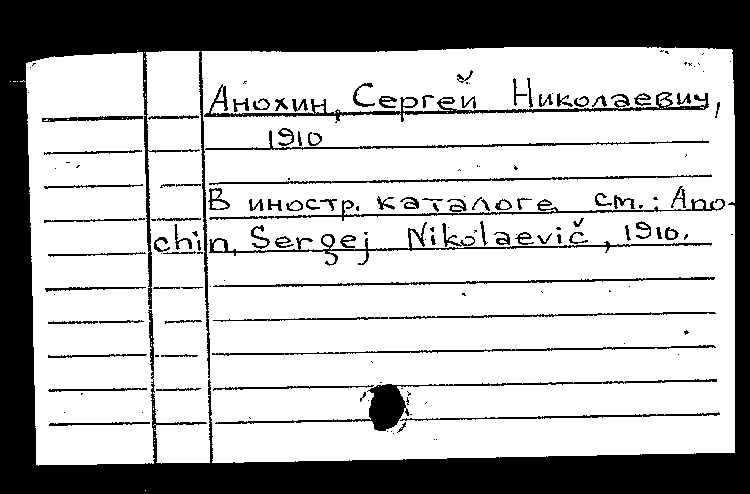 Анохин, Сергей Николаевич,
1910
В иностр. каталоге см.: Ano-
chin, Sergej Nikolaevič, 1910.